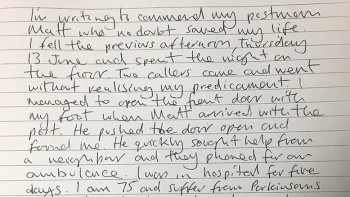 I'm writing to commend my postman
Matt who no doubt saved my life.
I fell the previous afternoon, Thursday
13 June and spent the night on
the floor. Two callers came and went
without realising my predicament. I
managed to open the front door with
my foot when Matt arrived with the
post. He pushed the door open and
found me. He quickly sought help from
a neighbour and they phoned for an
ambulance. I was in hospital for five
days. I am 75 and suffer from Parkinsons.